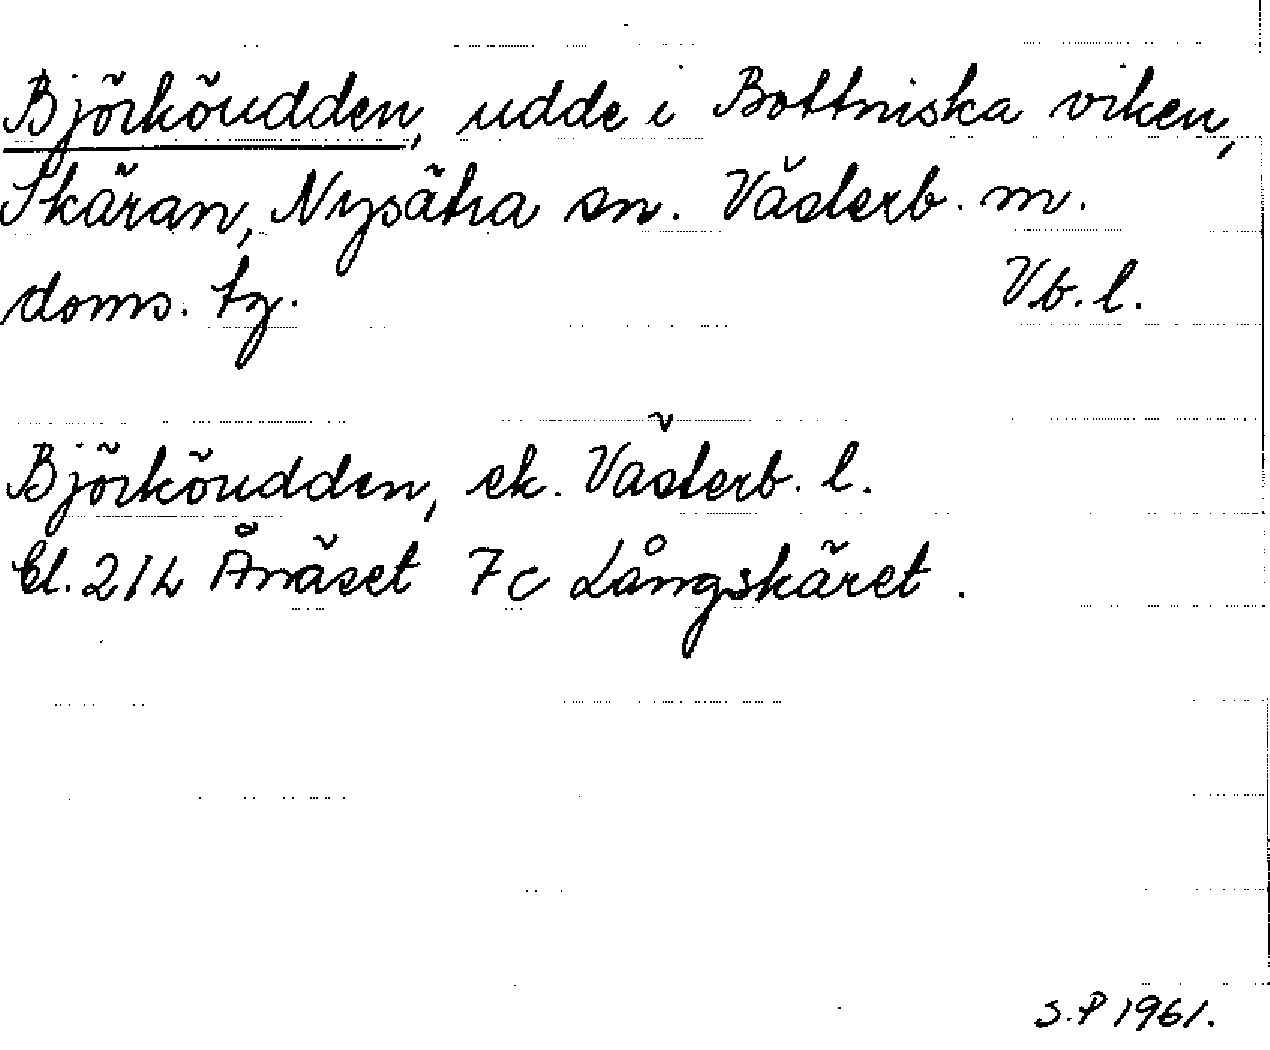 Björköudden, udde i Bottniska viken,
Skäran, Nysätra sn. Västerb. m.
doms. tg. Vb. l.
Björköudden, ek. Västerb. l.
bl. 21L Ånäset 7c Långskäret.
S.P 1961.